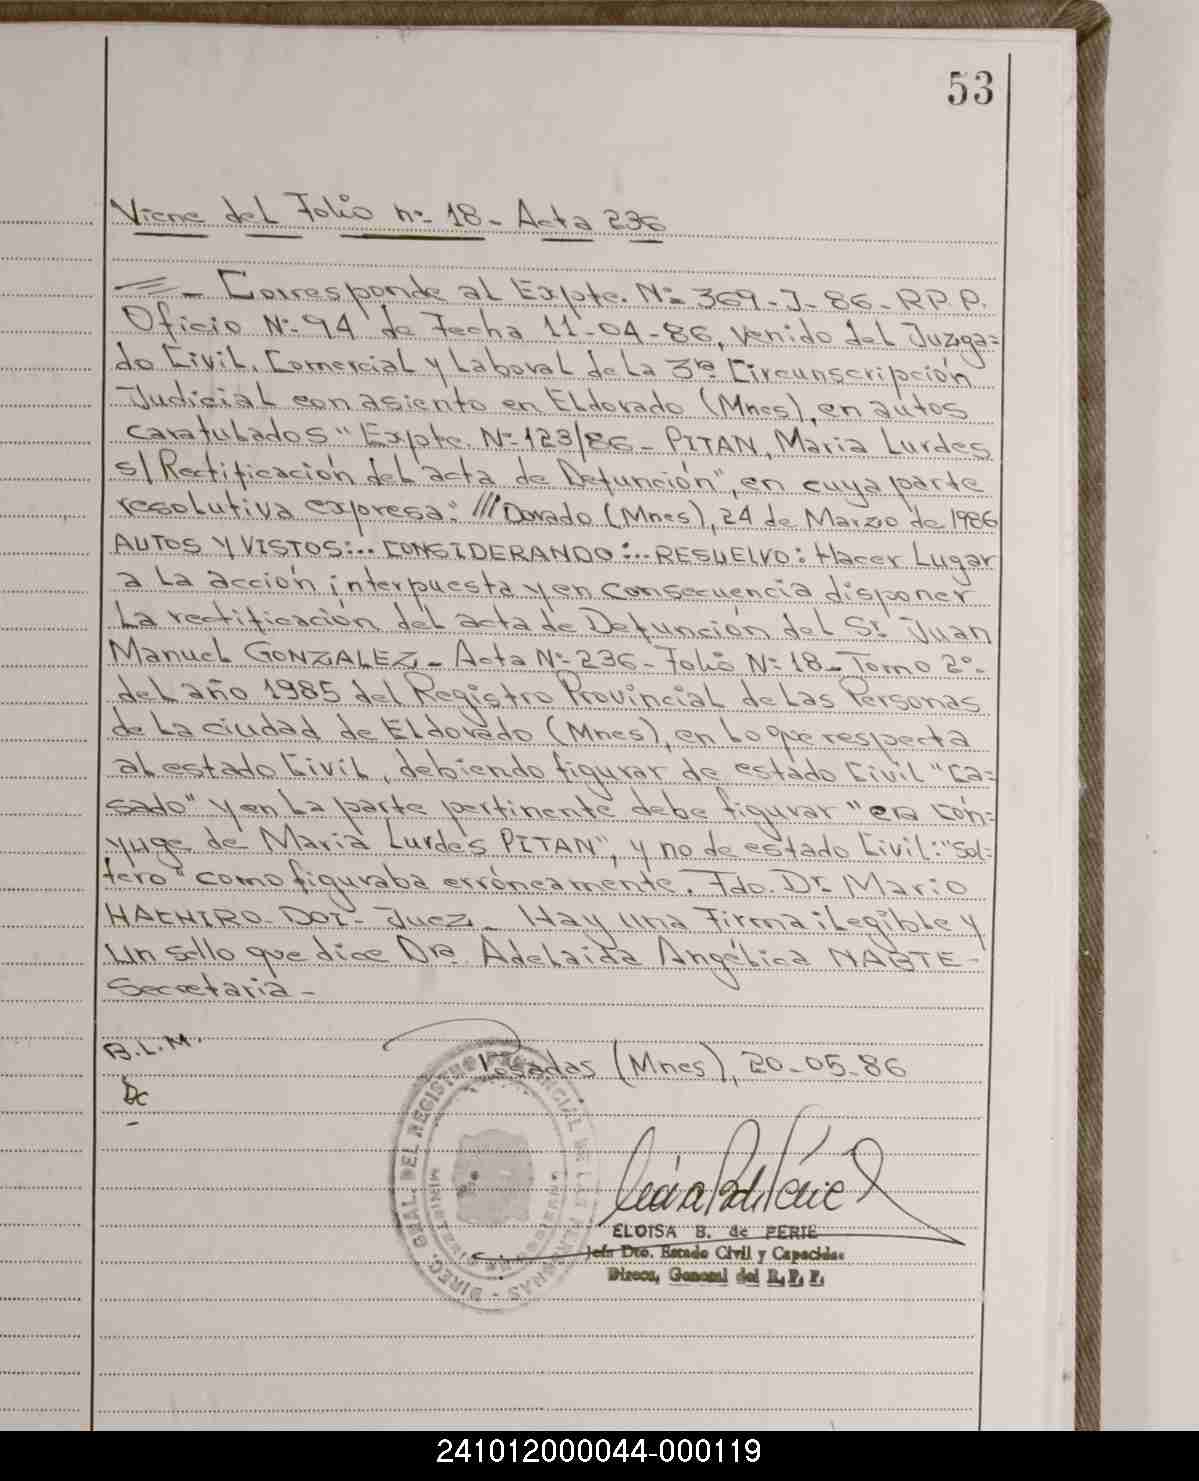 53
Viene del Folio nº 18 - Acta 236
- Corresponde al Expte. Nº 369-J-86-R.P.P.
Oficio Nº 94 de Fecha 11-04-86, venido del Juzga=
do Civil, Comercial y Laboral de la 3ra Circunscripción
Judicial con asiento en Eldorado (Mnes), en autos
caratulados "Expte. Nº 123/86 - PITAN, Maria Lurdes
s/Rectificación del acta de Defunción", en cuya parte
resolutiva expresa: "///Dorado (Mnes), 24 de Marzo de 1986
AUTOS Y VISTOS:.. CONSIDERANDO:.. RESUELVO: Hacer Lugar
a la acción interpuesta y en consecuencia disponer
la rectificación del acta de Defunción del Sr Juan
Manuel GONZALEZ - Acta Nº 236 - Folio Nº 18 - Tomo 2º-
del año 1985 del Registro Provincial de las Personas
de la ciudad de Eldorado (Mnes), en lo que respecta
al estado Civil, debiendo figurar de estado Civil "Ca=
sado" y en la parte pertinente debe figurar "era Cón=
yuge de Maria Lurdes PITAN", y no de estado Civil: "Sol=
tero" como figuraba erróneamente. Fdo. Dr. Mario
HACHIRO-DOI - Juez - Hay una Firma ilegible y
un sello que dice Dra. Adelaida Angélica NABTE-
Secretaria -
B.L.M.
Posadas (Mnes), 20-05-86
DIREC. GRAL. DEL REGISTRO PROVINCIAL DE LAS PERSONAS
ELOISA B. de PERIE
Jefa Dto. Estado Civil y Capacidad
Direcc. General del R. P. P.
241012000044-000119